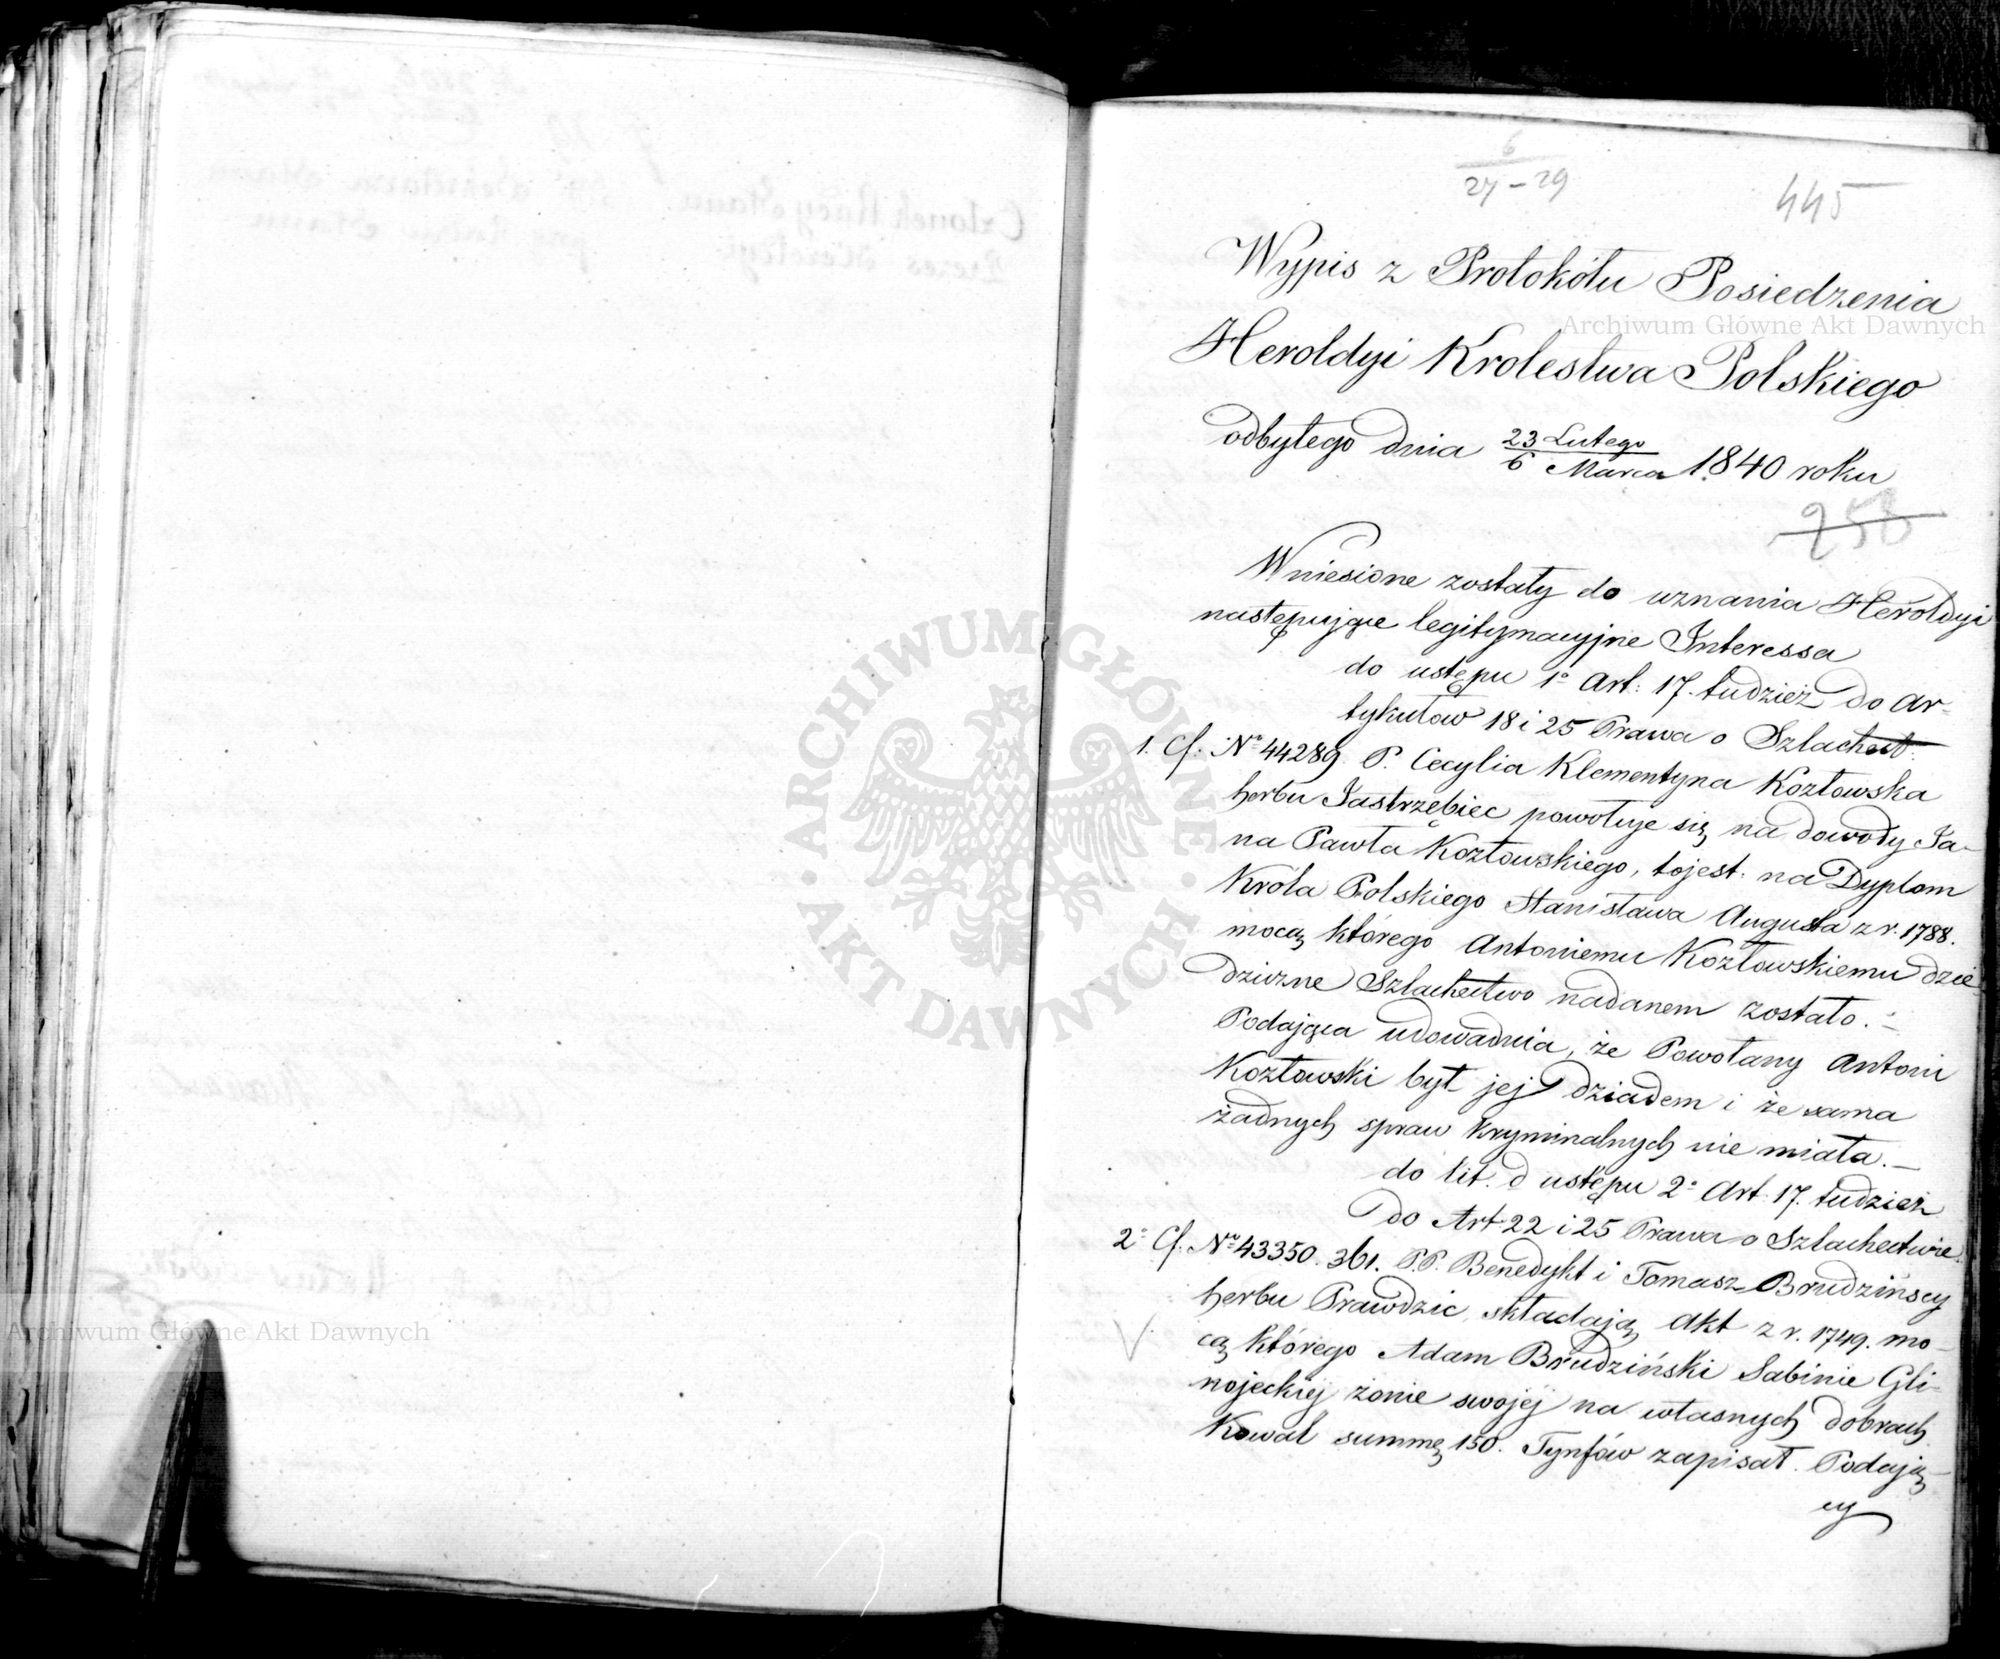 6
27 - 29
445
Wypis z Protokółu Posiedzenia
Archiwum Główne Akt Dawnych
Heroldyi Krolestwa Polskiego
odbytego dnia 23 Lutego / 6 Marca 1840 roku
258
Wniesione zostały do uznania Heroldyi
następujące legitymacyjne Interessa
do ustępu 1° Art: 17. tudzież do Ar-
tykułow 18 i 25 Prawa o Szlachect:
1. Cf. No 44289. P. Cecylia Klementyna Kozłowska
herbu Jastrzębiec powołuje się na dowody Ja-
na Pawła Kozłowskiego, tojest. na Dyplom
Króla Polskiego Stanisława Augusta z r. 1788.
mocą którego Antoniemu Kozłowskiemu dzie
dziczne Szlachectwo nadanem zostało. -
Podająca udowadnia, że Powołany Antoni
Kozłowski był jej dziadem i że sama
żadnych spraw kryminalnych nie miała. -
do lit. d ustępu 2° Art. 17. tudzież
do Art 22 i 25 Prawa o Szlachectwie.
2° Cf. No 43350. 361. P.P. Benedykt i Tomasz Brudzińscy
herbu Prawdzic, składają Akt z r. 1749. mo-
cą którego Adam Brudziński Sabinie Gli-
nojeckiej żonie swojej na własnych dobrach
Kowal summę 150. Tynfów zapisał. Podają-
cy
ARCHIWUM GŁÓWNE
AKT DAWNYCH
Archiwum Główne Akt Dawnych